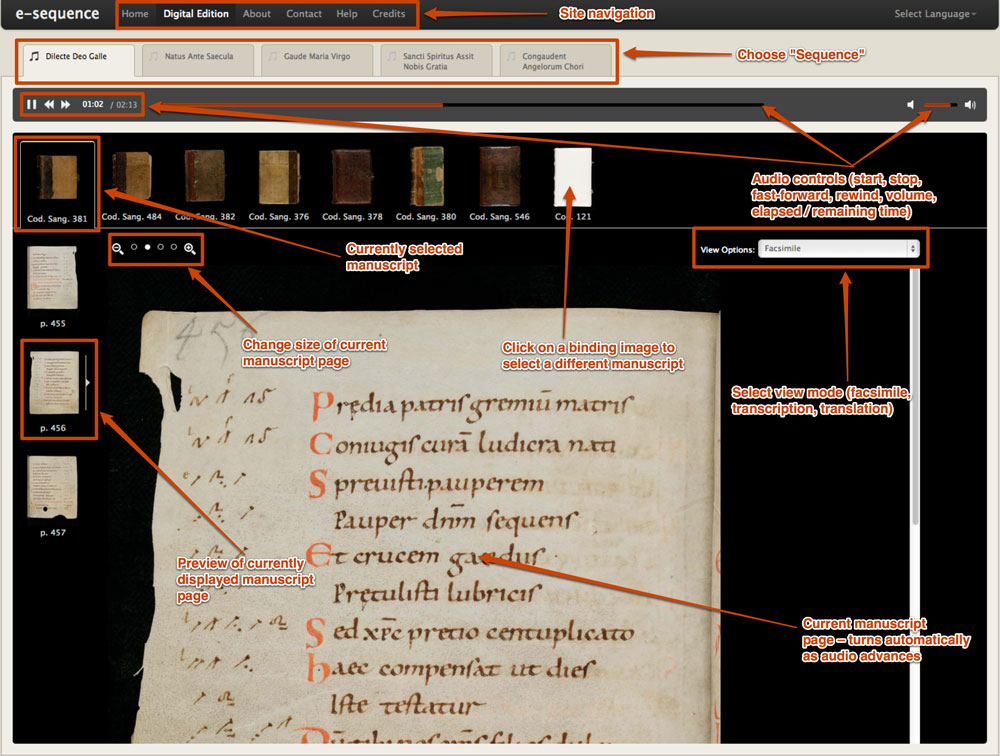 e-sequence
Home Digital Edition About Contact Help Credits
Site navigation
Select Language
Dilecte Deo Galle
Natus Ante Saecula
Gaude Maria Virgo
Sancti Spiritus Assit
Nobis Gratia
Congaudent
Angelorum Chori
Choose "Sequence"
01:02 / 02:13
Audio controls (start, stop,
fast-forward, rewind, volume,
elapsed / remaining time)
Cod. Sang. 381
Cod. Sang. 484
Cod. Sang. 382
Cod. Sang. 376
Cod. Sang. 378
Cod. Sang. 380
Cod. Sang. 546
Cod. 121
Currently selected
manuscript
View Options: Facsimile
p. 455
p. 456
p. 457
Change size of current
manuscript page
Click on a binding image to
select a different manuscript
Select view mode (facsimile,
transcription, translation)
Preview of currently
displayed manuscript
page
Current manuscript
page – turns automatically
as audio advances
456
Prędia patris gremiū matris
Coniugis curā ludicra nati
Sprevisti pauperem
Pauper dnm̄ sequens
Et crucem gaudus
Prętulisti lubricis
Sed xp̄c pretio centuplicato
haec compensat ut dies
Iste testatur